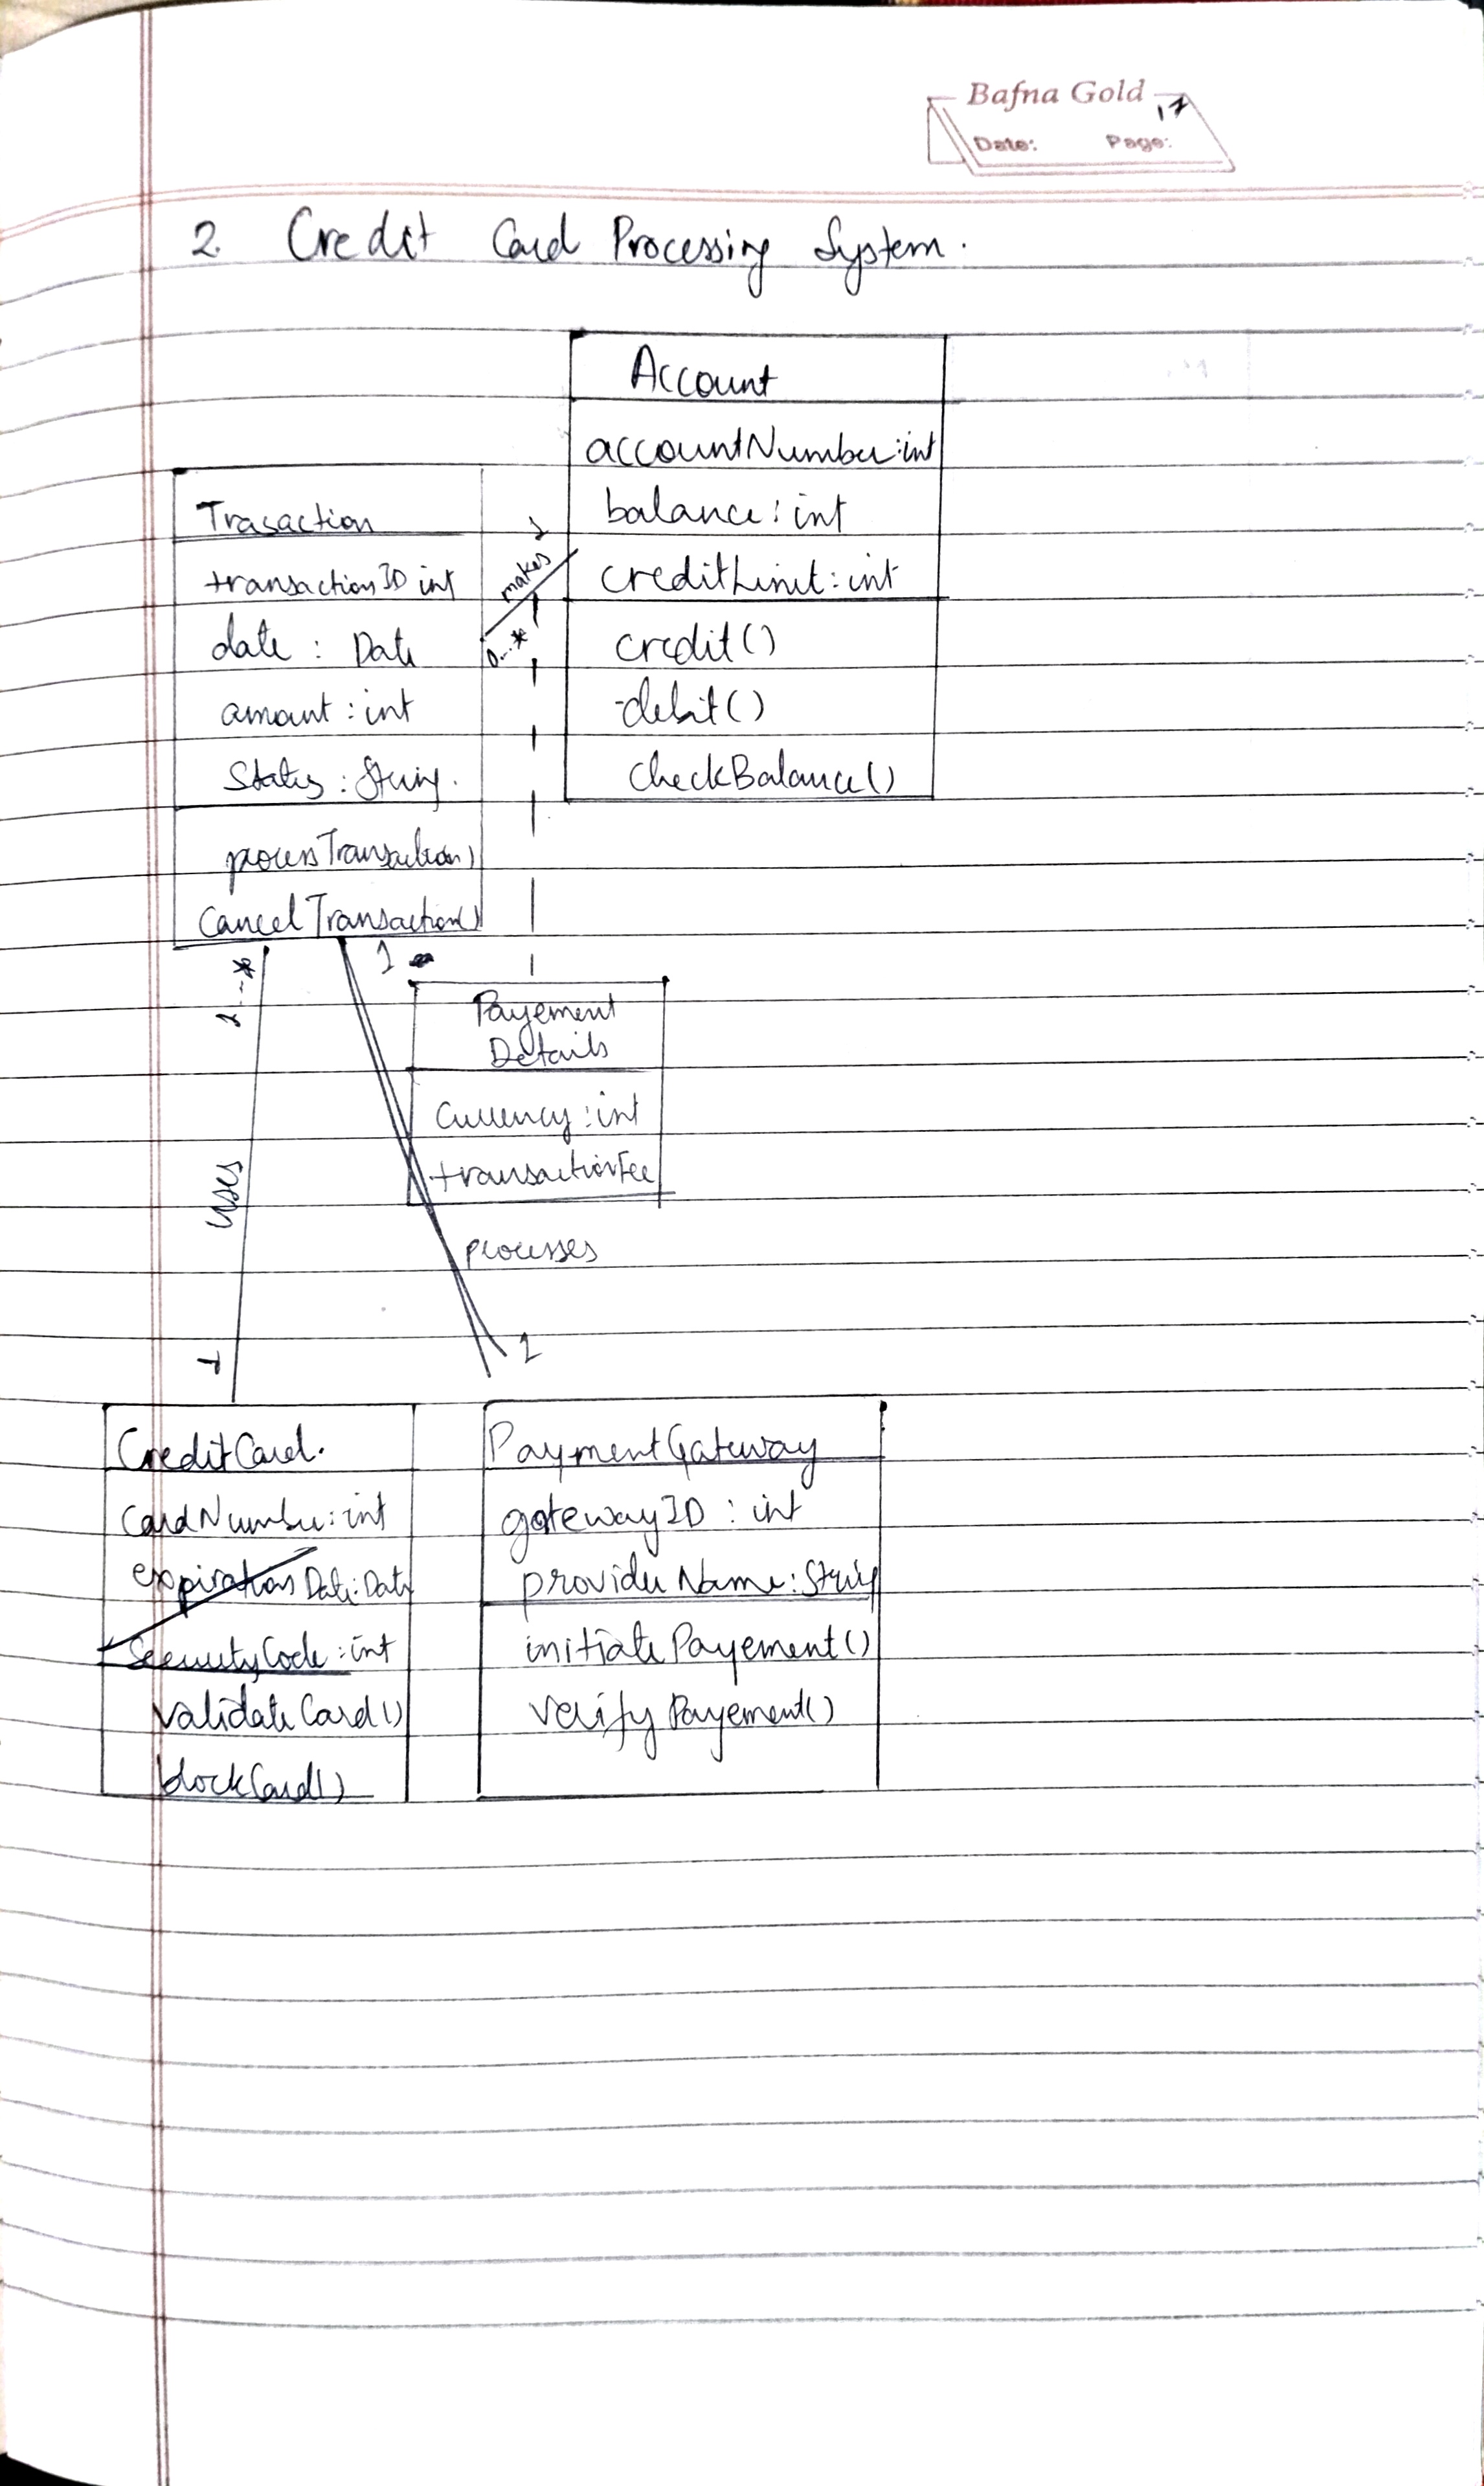 Bafna Gold
Date: Page: 17
2. Credit Card Processing System.
Account
accountNumber:int
balance: int
creditLimit: int
credit()
debit()
checkBalance()
Trasaction
transactionID int
date : Date
amount : int
Status : String.
processTransaction)
Cancel Transaction()
1
makes
0...*
1...*
uses
1
1
Payement
Details
Currency : int
transactionFee
processes
1
CreditCard.
CardNumber: int
expirations Date: Date
SecurityCode : int
validate Card()
blockCard()
PaymentGateway
gatewayID : int
provider Name: String
initiate Payement()
verify Payement()